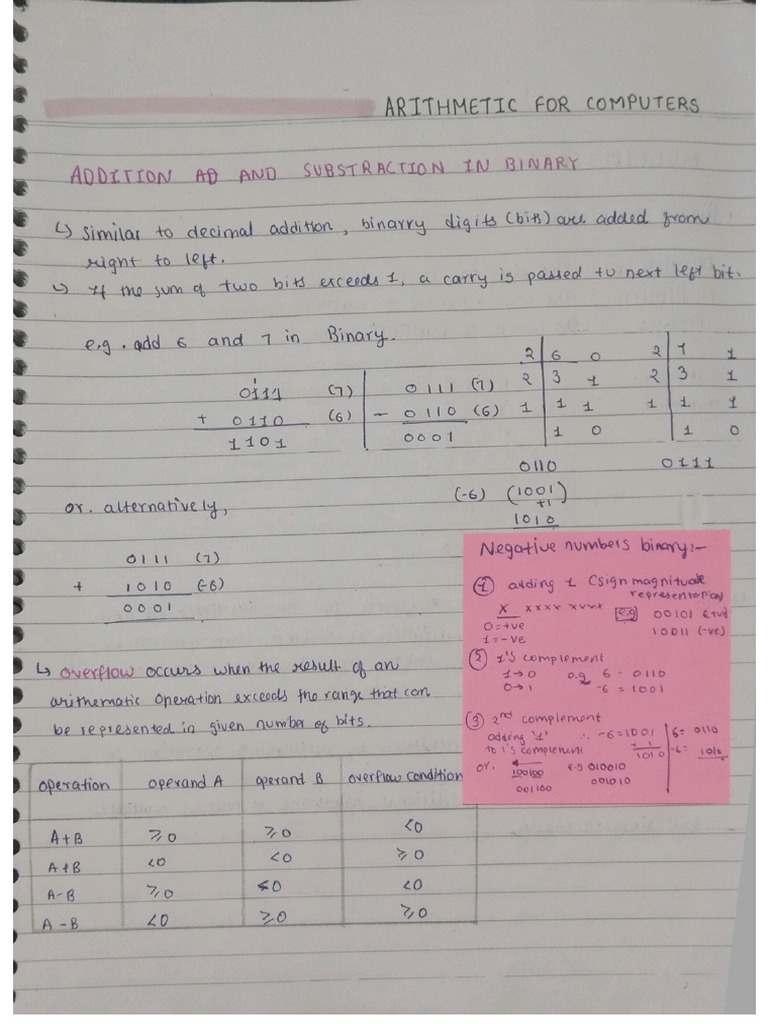 ARITHMETIC FOR COMPUTERS
ADDITION AD AND SUBSTRACTION IN BINARY
↳ Similar to decimal addition, binarry digits (bits) are added from
right to left.
↳ If the sum of two bits exceeds 1, a carry is passed to next left bit.
e.g. add 6 and 7 in Binary.
1
0111 (7)
+ 0110 (6)
1101
0111 (7)
- 0110 (6)
0001
2 6 0
2 3 1
1 1 1
1 0
0110
(-6) (1001)
+1
1010
2 7 1
2 3 1
1 1 1
1 0
0111
or. alternatively,
0111 (7)
+ 1010 (-6)
0001
↳ overflow occurs when the result of an
arithematic operation exceeds the range that can
be represented in given number of bits.
Operation operand A operand B overflow condition
A+B ≥0 ≥0 <0
A+B <0 <0 ≥0
A-B ≥0 <0 <0
A-B <0 ≥0 ≥0
Negative numbers binary:-
① adding 1 (sign magnitude
representation)
X xxxx xxxx e.g 00101 (+ve)
0=+ve 10011 (-ve)
1=-ve
② 1's complement
1→0 e.g 6 - 0110
0→1 -6 = 1001
③ 2nd complement
adding '1' ∴ -6=1001 6= 0110
to 1's complement + 1 -6= 1010
1010
or. ← e.g 010010
100100 001010
001100